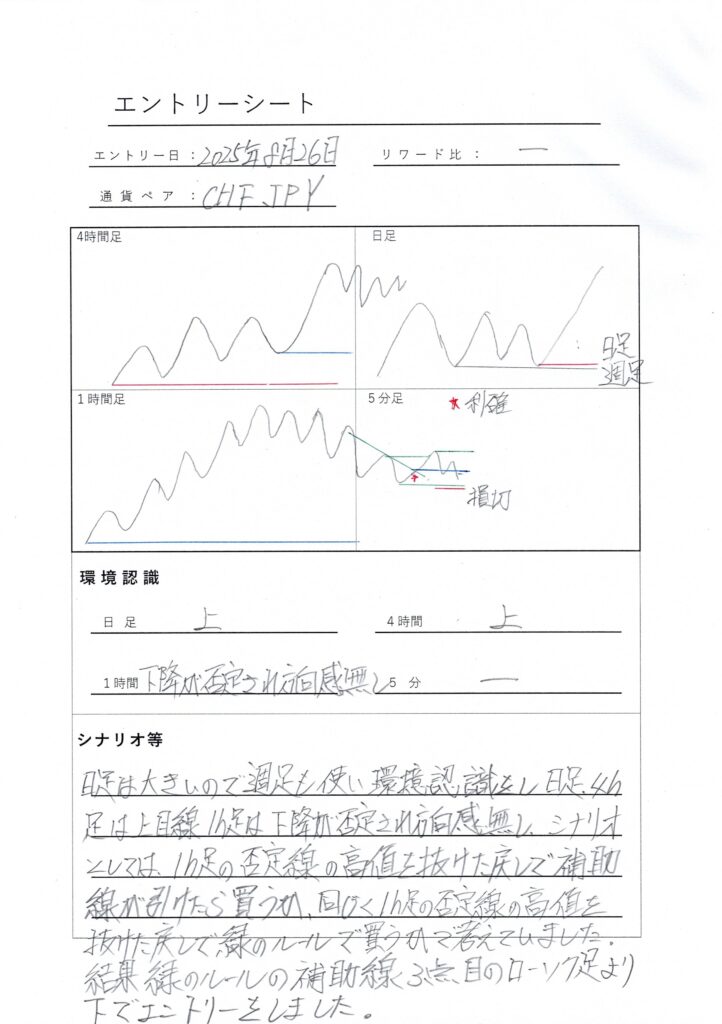 エントリーシート
エントリー日：2025年8月26日
リワード比：一
通貨ペア：CHF JPY
4時間足
日足
日足
週足
1時間足
5分足
利確
損切
環境認識
日足 上
4時間 上
1時間 下降が否定され方向感無し
5分 一
シナリオ等
日足は大きいので週足も使い環境認識をし日足、4h
足は上目線1h足は下降が否定され方向感無し、シナリオ
としては、1h足の否定線の高値を抜けた戻しで補助
線が引けたら買うか、同じく1h足の否定線の高値を
抜けた戻しで、緑のルールで買うかで考えていました。
結果緑のルールの補助線3点目のローソク足より
下でエントリーをしました。